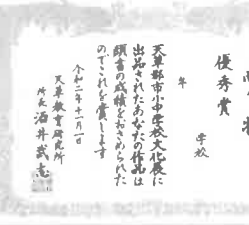 優秀賞
学校
年
天草郡市小中学校文化展に
出品されたあなたの作品は
頭書の成績をおさめられた
のでこれを賞します
令和二年十一月一日
天草教育研究所
所長 酒井武志